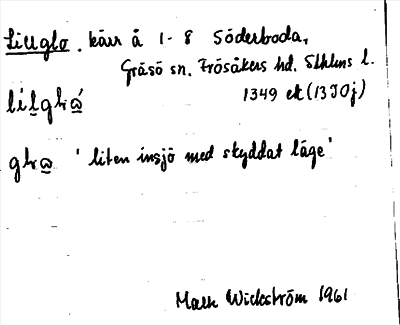 Lillglo. kärr å 1-8 Söderboda,
Gräsö sn. Frösåkers hd. Sthlms l.
lilgɦώ 1349 ek (13 I 0 j)
gɦω ' liten insjö med skyddat läge'
Wickström 1961